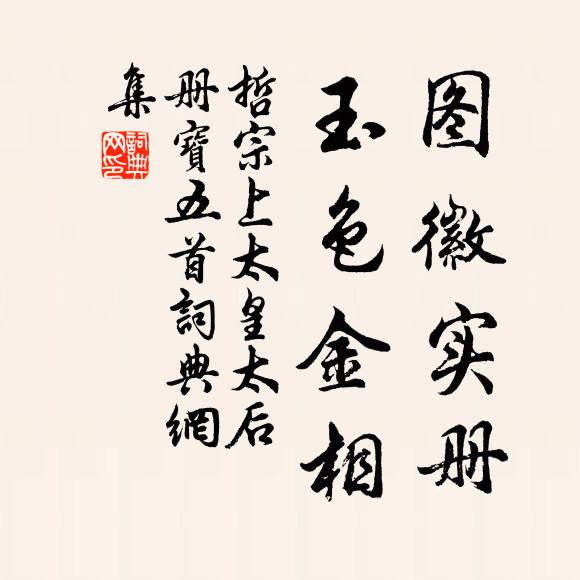 图徽实册
玉色金相
哲宗上太皇太后
册寶五首詞典網
集
詞典
网印